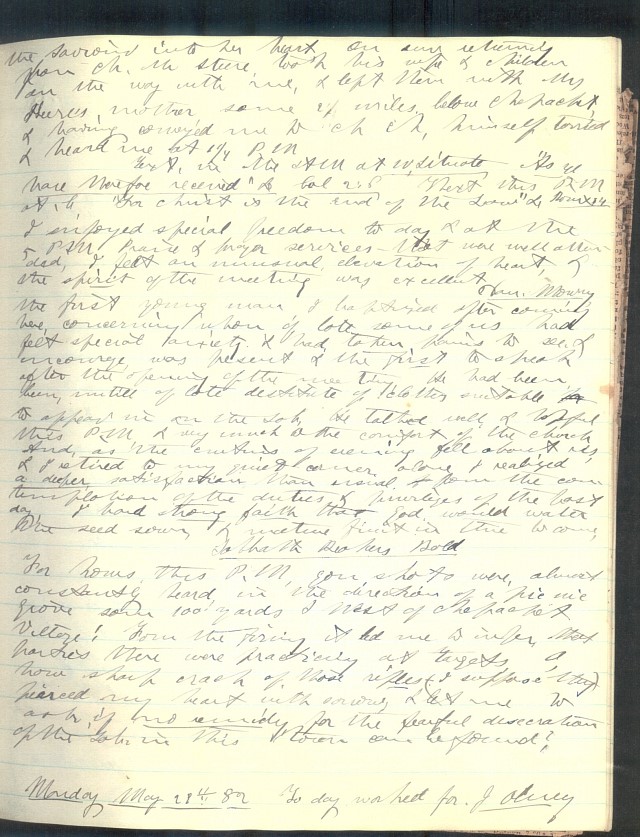 the Saviour into her heart. On our returning
from ch. Mr Steere, took his wife & children
on the way with me, & left them with My
Steeres, mother some 1½ miles, below Chepachet
& having conveyed me to ch ch, himself tarried
& heard me at 1½, P.M.
Text, in the A.M at N, Scituate "As ye
have therefore received" &c Col 2:6 Next this P.M
at "For Christ is the end of the Law" &c Rom x:4
I enjoyed special freedom to day & at the
5 P.M. Praise & prayer services that were well atten-
ded, I felt an unusual elevation of heart, &
the spirit of the meeting was excellent. Mowry
the first young man I baptized after coming
here, concerning whom of late some of us had
felt special anxiety, & had taken pains to see &
encourage, was present & the first to speak
after the opening of the meeting He had been
been, until of late destitute of clothes suitable
to appear in on the Sab, He talked well, & helpful
this P.M, & very much to the comfort of the church
And, as the curtains of evening fell about us
& I retired to my quiet corner, alone, I realized
a deeper satisfaction than usual, from the con-
templation of the duties & privileges of the past
day. I had strong faith that God, would water
the seed sown, & mature fruit in time to come,
Sabbath Breakers Bold
For hours this P.M, gun shots were, almost
constantly heard, in the direction of a pic nic
grove some 100 yards West of Chepachet
Village! From the firing it led me to infer, that
parties there were practicing at targets, &
how sharp crack of those rifles (I suppose they
pierced my heart with sorrow & led me to
ask, if no remedy for the fearful desecration
of the Sab, in this town can be found?
Monday May 29th 82 To day worked for. J Olney